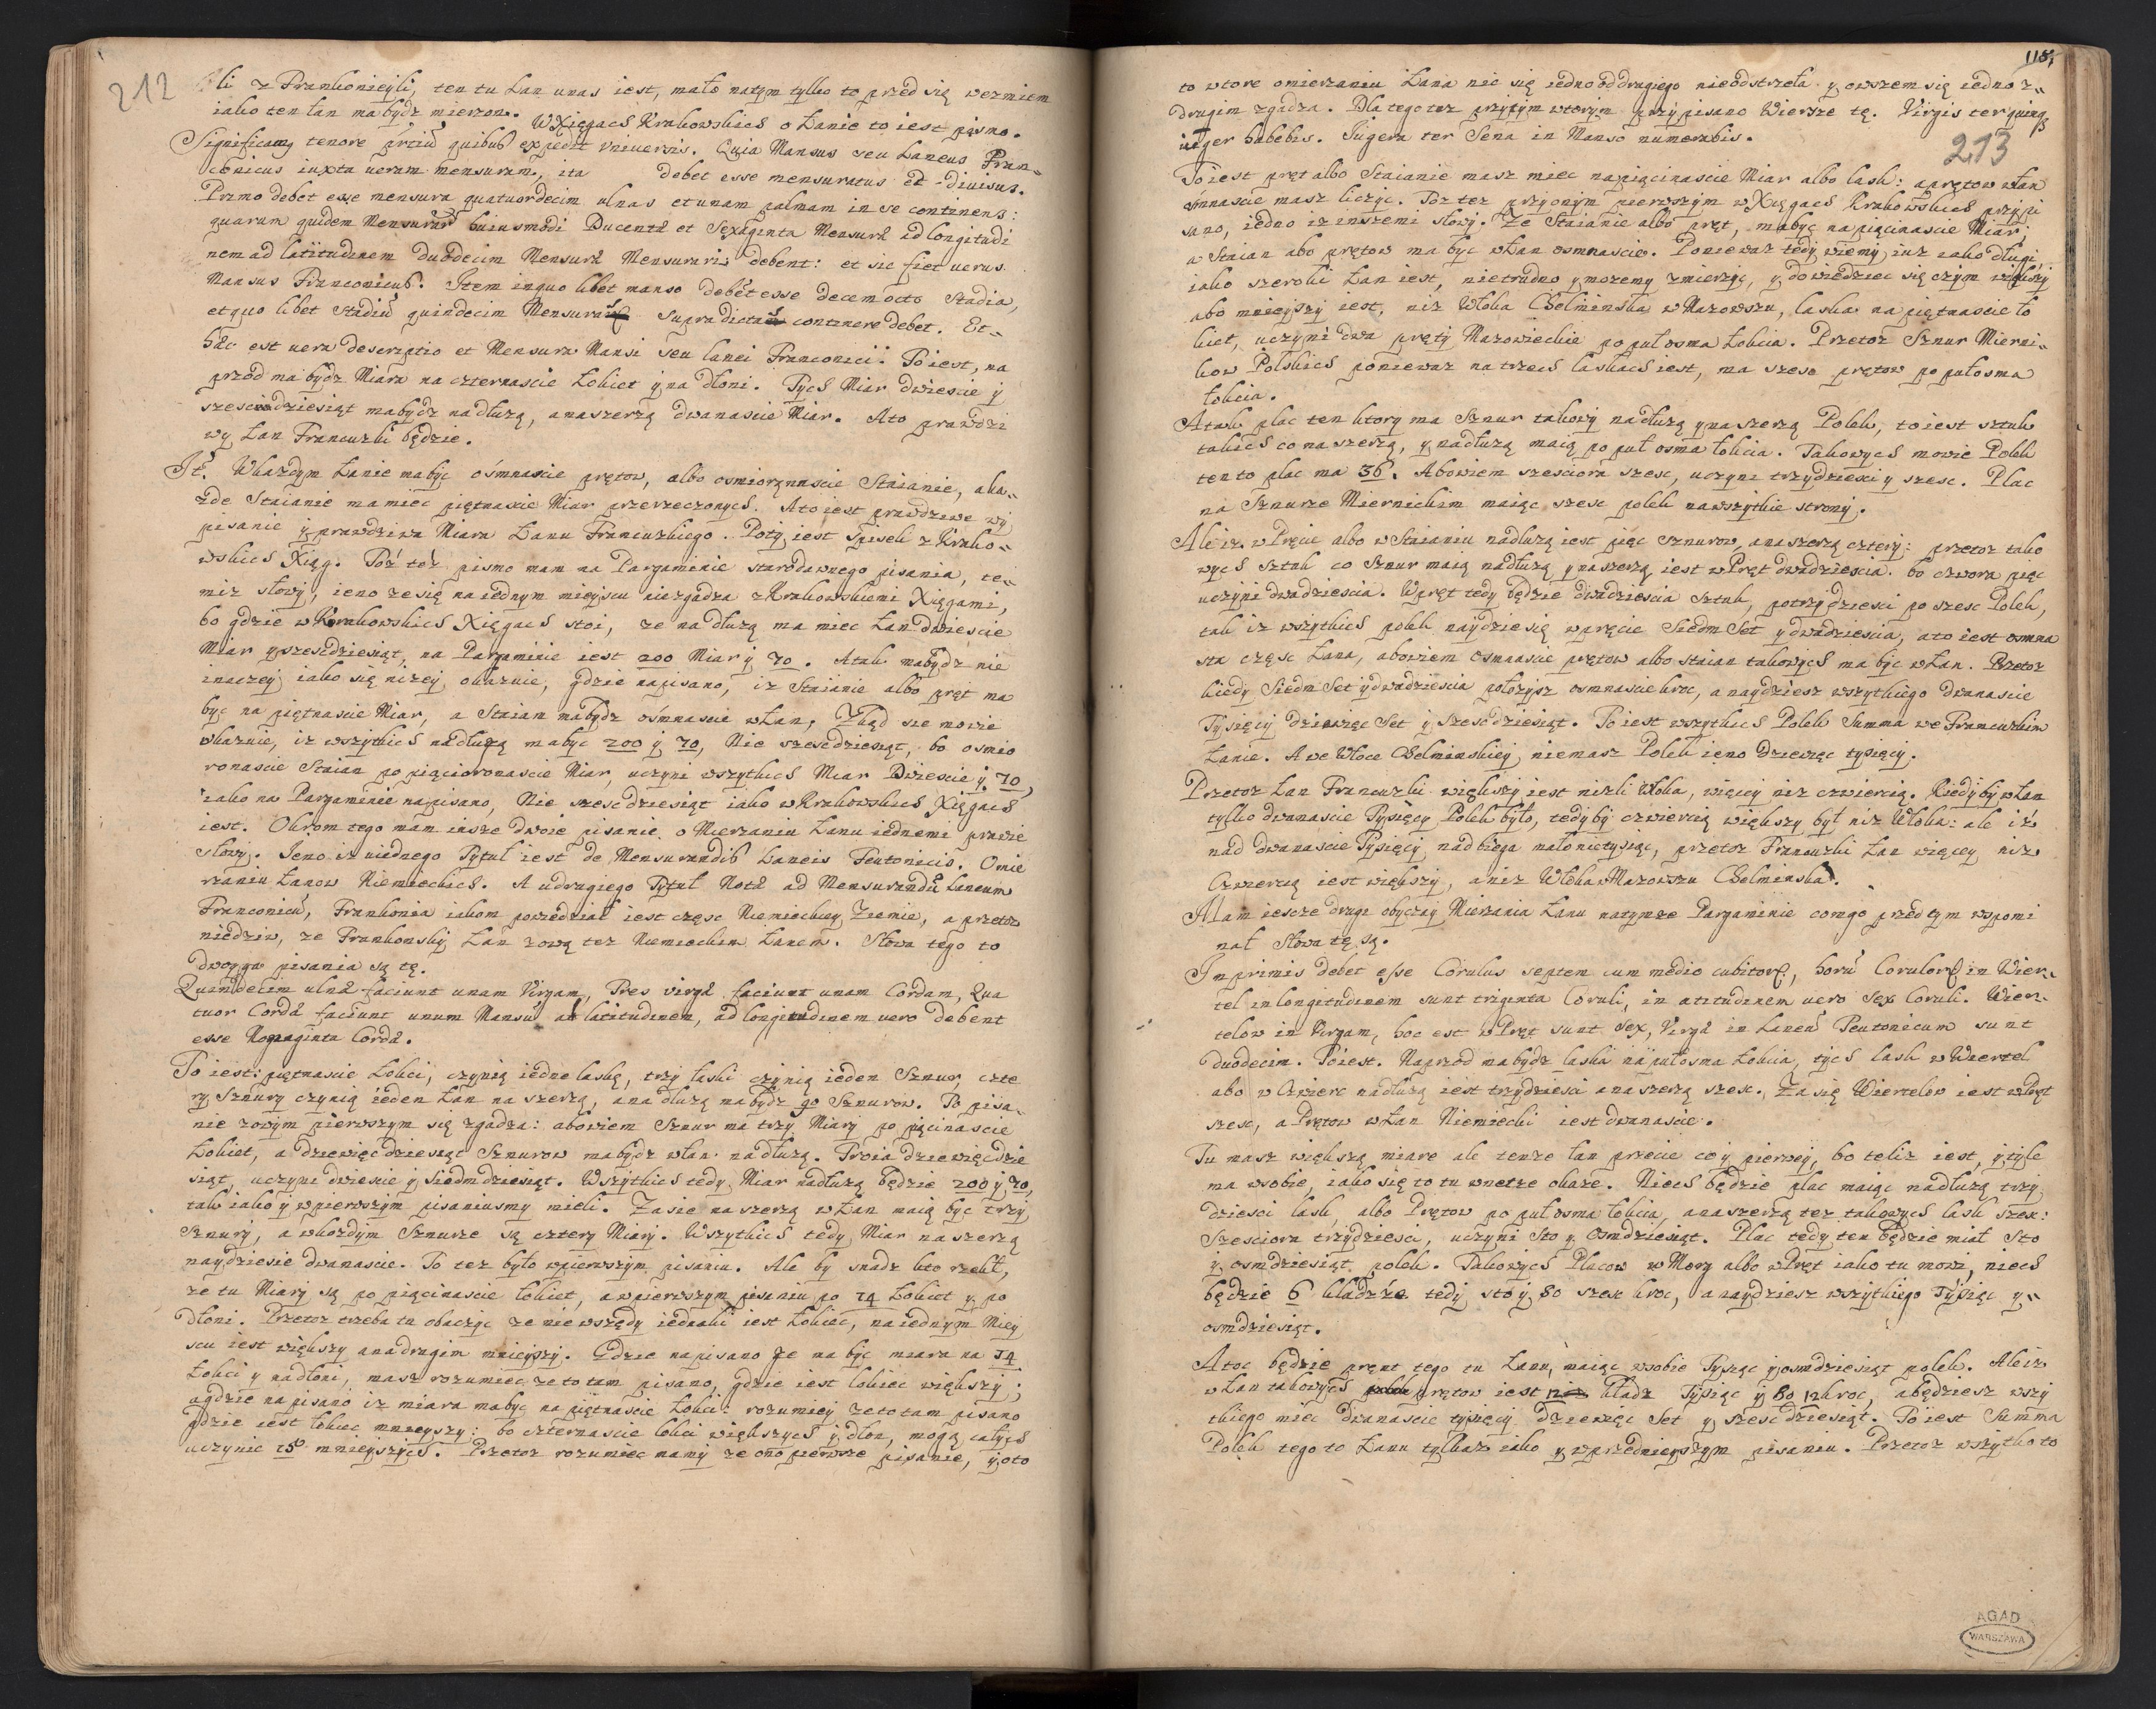 212
li z Frankoniey li, ten tu Łan unas iest, mało natym tylko to przed się wezmiem
iako ten łan ma bydz mierzon. W Xięgach Krakowskich o Łanie to iest pismo.
Significamq tenore pñtiũ quibus expedit vniuersis. Quia Mansus seu Laneus Fran=
conicus iuxta ueram mensuram, ita debet esse mensuratus et diuisus.
Primo debet esse mensura quatuordecim ulnas et unam palmam in se continens:
quarum quidem Mensurar huiusmodi Ducentæ et Sexaginta Mensuræ ad longitudi
nem ad latitudinem duodecim Mensuræ Mensurari debent: et sic fiet uerus
Mansus Franconicus. Item in quo libet manso debet esse decem octo Stadia,
et quo libet stadiũ quindecim Mensuras supra dictas continere debet. Et=
hæc est uera descriptio et Mensura Mansi seu lanei Franconici. To iest, na
przod ma bydz Miara na czternascie Łokiet y na dłoni. Tych Miar dwiescie y
szescdziesiąt ma bydz nadłuzą, a naszerzą dwanascie Miar. A to prawdzi
wy Łan Francuzki będzie.
It. W kazdym Łanie ma byc osmnascie prętow, albo osmiorgnascie Staianie, a ka=
zde Staianie ma miec piętnascie Miar przerzeczonych. A to iest prawdziwe wy
pisanie y prawdziwa Miara Łanu Francuzkiego. Poty iest spisek z Krako=
wskich Xiąg. Toż też pismo mam na Pargaminie starodawnego pisania, te=
miz słowy, ieno ze się na iednym mieyscu niezgadza z Krakowskiemi Xięgami,
bo gdzie w Krakowskich Xięgach stoi, ze na dłuzą ma miec Łan dwiescie
Miar y szescdziesiąt, na Pargaminie iest 200 Miar y 70. A tak ma bydz nie
inaczey iako się nizey okazuie, gdzie napisano, iz Staianie albo pręt ma
byc na piętnascie Miar, a Staian ma bydz osmnascie w Łan, Zkąd sie mowie
ukazuie, iz wszytkich nadłuzą ma byc 200 y 70, Nie szescdziesiąt, bo osmio
ronascie Staian po pięcioronascie Miar, uczyni wszytkich Miar Dwiescie y 70,
iako na Pargaminie napisano, Nie szescdziesiąt iako w Krakowskich Xięgach
iest. Okrom tego mam insze dwoie pisanie o Mierzaniu Łanu iednemi prawie
słowy. Ieno iz uiednego Tytuł iest de Mensurandis Laneis Teutonicis. O mie
rzaniu Łanow Niemieckich. A udrugiego Tytuł Nota ad Mensurandũ Laneum
Franconicũ, Frankonia iakom powiedział iest częsc Niemieckiey Ziemie, a przetoz
niedziw, ze Frankonsky Łan zową tez Niemieckim Łanem. Słowa tego to
dwoyga pisania są tę.
Quindecim ulnæ faciunt unam Virgam, Tres virgæ faciunt unam Cordam, Qua
tuor Cordæ faciunt unum Mansũ ad latitudinem, ad longitudinem uero debent
esse Nonaginta Cordæ.
To iest: piętnascie Łokci, czynią iedne laskę, trzy laski czynią ieden Sznur, czte
ry Sznury czynią ieden Łan na szerzą, a na dłuzą ma bydz 90 Sznurow. To pisa=
nie zowym pierwszym się zgadza: abowiem Sznur ma trzy Miary po pięcinascie
Łokiet, a dziewięcdziesiąt Sznurow ma bydz w Łan nadłuzą. Troia dziewięcdzie
siąt, uczyni dwiescie y siedmdziesiąt. Wszytkich tedy Miar nadłuzą będzie 200 y 70,
tak iako y w pierwszym pisaniu smy mieli. Zasie na szerzą w Łan maią byc trzy
Sznury, a w kozdym Sznurze są cztery Miary. Wszytkich tedy Miar na szerzą
naydziesie dwanascie. To tez było w pierwszym pisaniu. Ale by snadz kto rzekł,
ze tu Miary są po pięcinascie łokiet, a w pierwszym pisaniu po 14 Łokiet y po
Dłoni. Przetoz trzeba tu obaczyc ze nie wszędy iednaki iest Łokiec, na iednym Miey
scu iest większy a na drugim mnieyszy. Gdzie napisano ze ma byc miara na 14
Łokci y na dłoni, masz rozumiec ze to tam pisano, gdzie iest łokiec większy;
a gdzie napisano iz miara ma byc na piętnascie Łokci: rozumiey ze to tam pisano
gdzie iest łokiec mnieyszy: bo czternascie łokci większych y dłon, mogą całych
uczynic 15 mnieyszych. Przetoz rozumiec mamy ze ono pierwsze pisanie, y oto
118,
to wtore omierzaniu Łana nic się iedno od drugiego nieodstrzela y owszem się iedno z=
drugim zgadza. Dla tego tez przytym wtorym przypisano Wiersze tę. Virgis ter quinq
iuger habebis. Iugera ter Sena in Manso numerabis.
213
To iest pręt albo Staianie masz miec na pięcinascie Miar albo lask: a prętow w Łan
osmnascie masz liczyc. Toz tez przy onym pierwszym w Xięgach Krakowskich przypi
sano, iedno iz inszemi słowy. Ze Staianie albo pręt, ma byc na pięcinascie Miar;
a Staian abo prętow ma byc w Łan osmnascie. Poniewaz tedy wiemy iuz iako długi
iako szeroki Łan iest, nietrudno y mozemy zmierzyc, y dowiedziec się czym większy
abo mnieyszy iest, niz Włoka Chelminska w Mazowszu, laska na piętnascie ło
kiet, uczyni dwa pręty Mazowieckie po puł osma Łokcia. Przetoz Sznur Mierni=
kow Polskich poniewaz na trzech laskach iest, ma szesc prętow po połosma
łokcia.
A tak plac ten ktory ma Sznur takowy nadłuzą y na szerzą Polek, to iest sztuk
takich co na szerzą, y nadłuzą maią po puł osma łokcia. Takowych mowie Polek
ten to plac ma 36. Abowiem szesciora szesc, uczyni trzydziesci y szesc. Plac
na Sznurze Miernickim maiąc szesc polek na wszytkie strony.
Ale iz w Pręcie albo w Staianiu nadłuzą iest pięc sznurow, a naszerzą cztery: przetoz tako
wych Sztuk co Sznur maią nadłuzą y na szerzą iest w Pręt dwadziescia. bo czwora pięc
uczyni dwadziescia. W pręt tedy będzie dwadziescia Sztuk, po trzydziesci po szesc Polek,
tak iz wszytkich polek naydzie się w pręcie Siedm Set y dwadziescia, a to iest osmna
sta częsc Łana, abowiem Osmnascie prętow albo staian takowych ma byc w Łan. Przetoz
kiedy Siedm Set y dwadziescia położysz osmnasciekroc, a naydziesz wszytkiego dwanascie
Tysięcy dziewięc Set y szescdziesiąt. To iest wszytkich Polek Summa we Francuzkim
Łanie. A we Włoce Chelminskiey niemasz Polek ieno Dziewięc tysięcy.
Przetoz Łan Francuzki większy iest nizli Włoka, więcey niz czwiercią. Kiedy by w Łan
tylko dwanascie Tysięcy Polek było, tedy by czwiercią większy był niz Włoka: ale iż
nad dwanascie Tysięcy nad biega mało nietysiąc, przetoz Francuzki Łan więcey niz
Czwiercią iest większy, a niz Włoka w Mazowszu Chelminska.
Mam iescze drugi obyczay Mierzania Łanu natymze Pargaminie com go przed tym wspomi
nał Słowa tę są.
In primis debet esse Corulus septem cum medio cubitor, horũ Corulor in Wier=
tel in longitudinem sunt triginta Coruli, in atitudinem uero Sex Coruli. Wier=
telow in Virgam, hoc est w Pręt sunt Sex, Virgæ in Laneũ Teutonicum sunt
Duodecim. To iest. Naprzod ma bydz laska na pułosma Łokcia, tych lask w Wiertel
abo w Czwierc nadłuzą iest trzydziesci a na szerzą szesc. Za się Wiertelow iest w Pręt
szesc, a Prętow w Łan Niemiecki iest dwanascie.
Tu masz większą miare ale tenze łan przecie co y pierwey, bo teliz iest, y tyle
ma wsobie, iako się to tu wnetze okaze. Niech będzie plac maiąc nadłuzą trzy
dziesci lask, albo Prętow po puł osma łokcia, a naszerzą tez takowych lask szesc:
Szesciora trzydziesci, uczyni Sto y Osmdziesiąt. Plac tedy ten będzie miał Sto
y osmdziesiąt polek. Takowych Placow w Morg albo w Pręt iako tu mowi, niech
będzie 6 kladźże tedy sto y 80 szesc kroc, a naydziesz wszytkiego Tysiąc y=
osmdziesiąt.
A toc będzie prent tego tu Łanu, maiąc wsobie Tysiąc y osmdziesiąt polek. Ale iz
w Łan takowych prętow iest 12 kladz Tysiąc y 80 12kroc, a będziesz wszy
tkiego miec dwanascie tysięcy dziewięc Set y szescdziesiąt. To iest Summa
Polek tego to Łanu tylkaz iako y w przednieyszym pisaniu. Przetoz wszytko to
AGAD
WARSZAWA